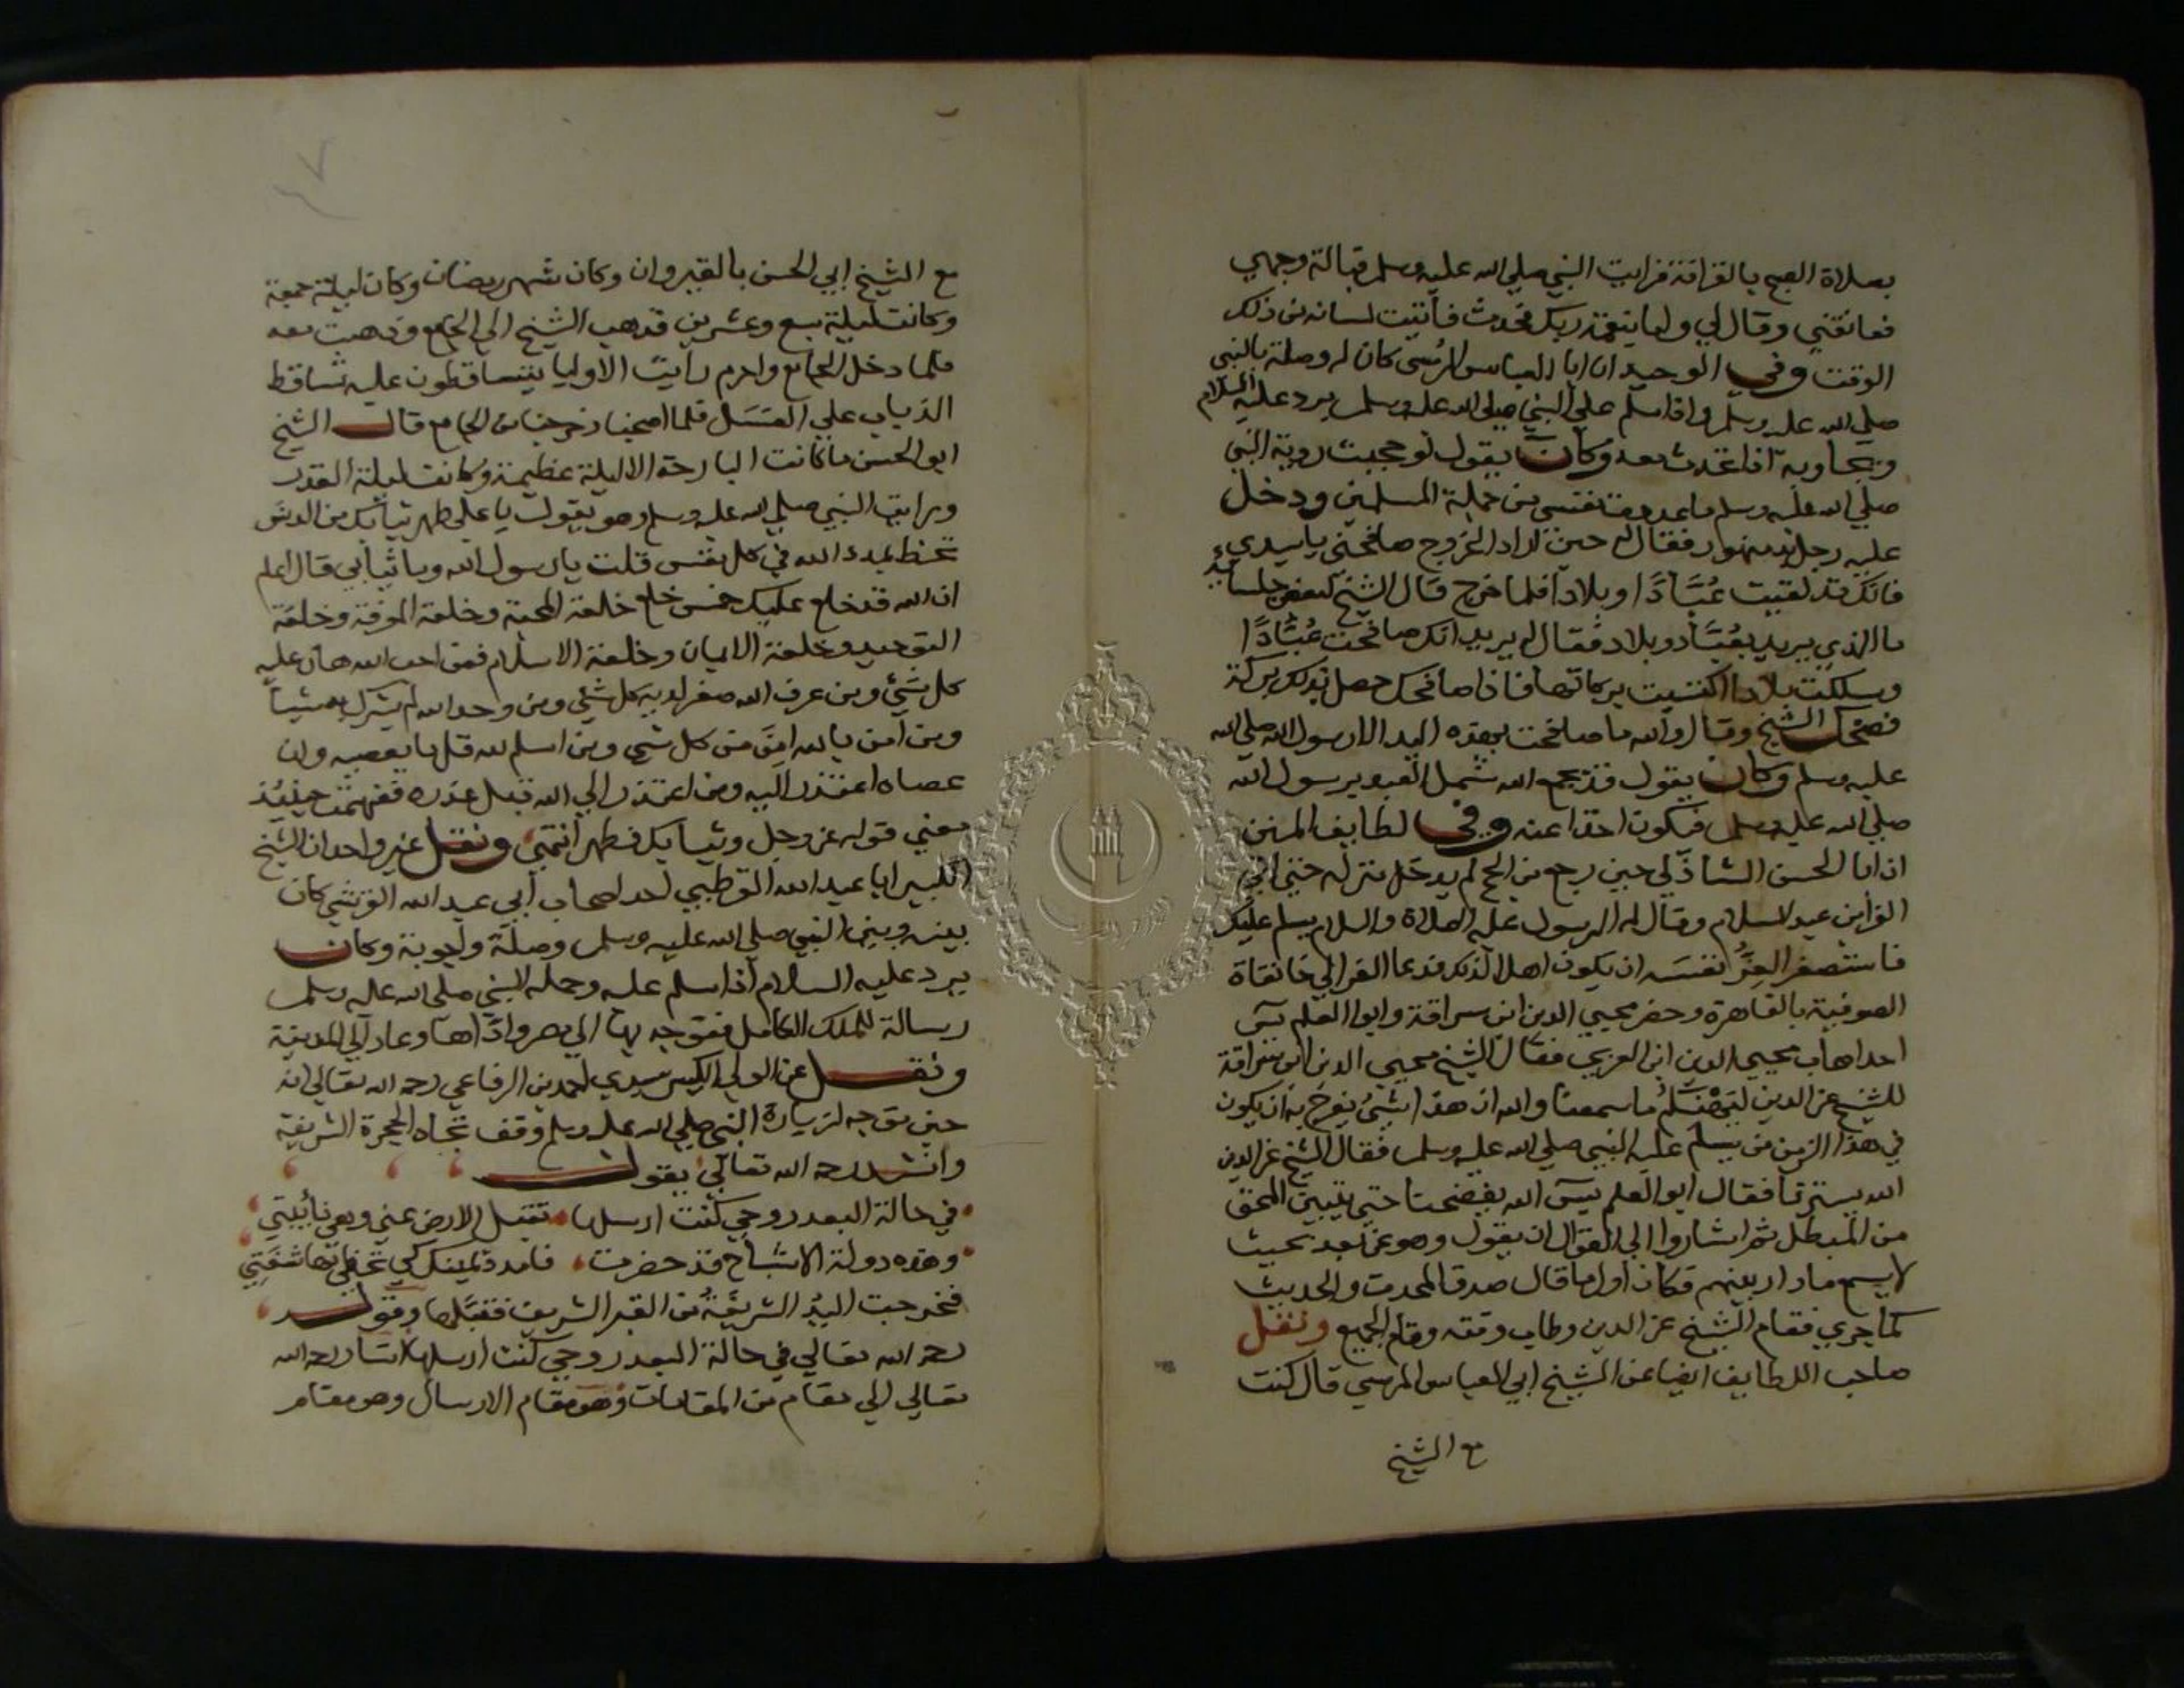 بصلاة الصبح بالقرافة فرايت النبي صلي الله عليه وسلم قبالة وجهي
فعانقني وقال لي واما بنعمة ربك فحدث فأثبت لسانه من ذلك
الوقت وفي الوحيد ان ابا العباس المرسى كان له وصلة بالنبى
صلي الله عليه وسلم واذا سلم علي النبي صلي الله عليه وسلم يرد عليه السلام
ويجاوبه اذا تحدث معه وكان يقول لو حجبت روية النبي
صلي الله عليه وسلم ما عددت نفسى من جملة المسلمين ودخل
عليه رجل فقال له حين اراد الخروج صافحني ياسيدي
فانك قد لقيت عُبَّادًا وبلادا فلما خرج قال الشيخ لبعض جلسائه
ما الذي يريد بعُبَّاد وبلاد فقال له يريد انك صافحت عُبَّادًا
وسلكت بلادا اكتسبت بركاتها فاذا صافحك حصل له ذلك بركة
فضحك الشيخ وقال والله ما صافحت بهذه اليد الا رسول الله صلي الله
عليه وسلم وكان يقول قد يجمع الله شمل العبد برسول الله
صلي الله عليه وسلم فيكون اخذا عنه وفي لطايف المنن
ان ابا الحسن الشاذلي حين رجع من الحج لم يدخل منزله حتى اتي
الي ابن عبد السلام وقال له الرسول عليه الصلاة والسلام يسلم عليك
فاستصغر العِزُّ نفسَه ان يكون اهلا لذلك فدعا الي خانقاة
الصوفية بالقاهرة وحضر محيي الدين ابن سراقة وابو العلم يسَ
احد اصحاب محيي الدين ابن العربي فقال الشيخ محيي الدين ابن سراقة
للشيخ عز الدين ليَهْنَكُم ما سمعنا والله ان هذا لشئ يُفرح به ان يكون
في هذا الزمن من يسلم عليه النبي صلي الله عليه وسلم فقال الشيخ عز الدين
الله يسترنا فقال ابو العلم يسَ الله يفضحنا حتي يتبين المحق
من المبطل ثم اشاروا الي القوال ان يقول وهو عن بُعد بحيث
لا يسمع ما دار بينهم فكان اول ما قال صدق المحدث والحديث
كما جري فقام الشيخ عز الدين وطاب وقته وقام الجميع ونقل
صاحب اللطايف ايضا عن الشيخ ابي العباس المرسي قال كنت
مع الشيخ
مع الشيخ ابي الحسن بالقيروان وكان شهر رمضان وكان ليلة جمعة
وكانت ليلة سبع وعشرين فذهب الشيخ الي الجامع وذهبت معه
فلما دخل الجامع واحرم رايت الاوليا يتساقطون عليه تساقط
الذباب علي العسَل فلما اصبحنا وخرجنا من الجامع قال الشيخ
ابو الحسن ما كانت البارحة الا ليلة عظيمة وكانت ليلة القدر
ورايت النبي صلي الله عليه وسلم وهو يقول يا علي طهر ثيابك من الدنس
تحظ بمدد الله في كل نفس قلت يارسول الله وما ثيابي قال اعلم
ان الله قد خلع عليك خمس خلع خلعة المحبة وخلعة المعرفة وخلعة
التوحيد وخلعة الايمان وخلعة الاسلام فمن احب الله هان عليه
كل شيئ ومن عرف الله صغر لديه كل شيئ ومن وحد الله لم يشرك به شيئاً
ومن امن بالله امِنَ من كل شي ومن اسلم لله قل ما يعصيه وان
عصاه اعتذر اليه ومن اعتذر الي الله قبل عذره ففهمت حينئذ
معني قوله عز وجل وثيابك فطهر انتهي ونقل غير واحد ان الشيخ
الكبير ابا عبد الله القرطبي احد اصحاب أبي عبد الله القرشي كان
بينه وبين النبي صلي الله عليه وسلم وصلة واجوبة وكان
يرد عليه السلام اذا سلم عليه وحمله النبي صلي الله عليه وسلم
رسالة للملك الكامل فتوجه بها الي مصر وادَّاها وعاد الي المدينة
ونقل عن الولي الكبير سيدي احمد بن الرفاعي رحمه الله تعالي انه
حين توجه لزيارة النبي صلي الله عليه وسلم وقف تجاه الحجرة الشريفة
وانشد رحمه الله تعالي يقول
في حالة البعد روحي كنت ارسلها تقبل الارض عني وهي نائبتي
وهذه دولة الاشباح قد حضرت فامدد يمينك كي تحظي بها شفتي
فخرجت اليدُ الشريفَةُ من القبر الشريف فقبَّلها وقول
رحمه الله تعالي في حالة البعد روحي كنت ارسلها اشار رحمه الله
تعالي الي مقام من المقامات وهو مقام الارسال وهو مقام